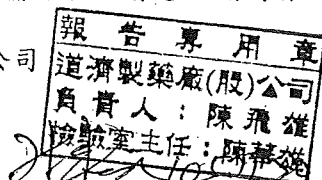 公司
報告專用章
道濟製藥廠(股)公司
負責人：陳飛雄
檢驗室主任：陳華雄